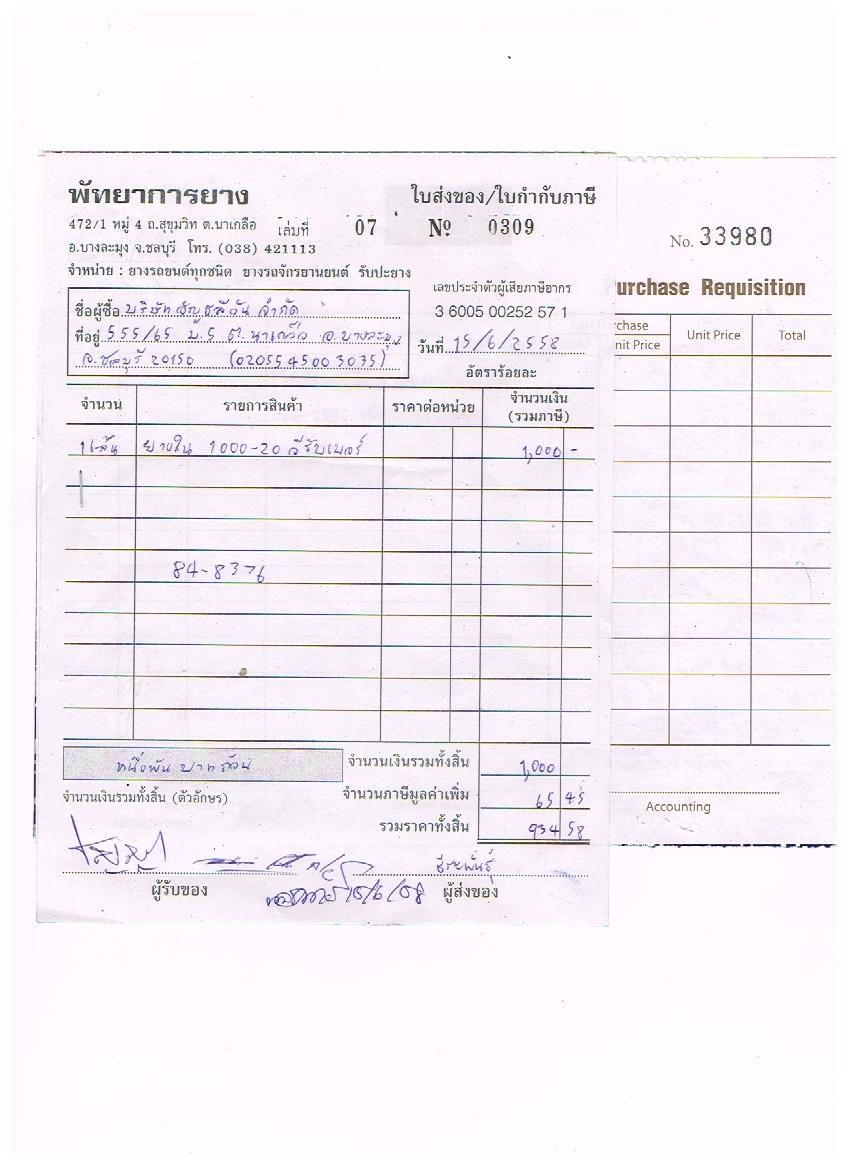 พัทยาการยาง
ใบส่งของ/ใบกำกับภาษี
472/1 หมู่ 4 ถ.สุขุมวิท ต.นาเกลือ เล่มที่ 07 № 0309
อ.บางละมุง จ.ชลบุรี โทร. (038) 421113
จำหน่าย : ยางรถยนต์ทุกชนิด ยางรถจักรยานยนต์ รับปะยาง
เลขประจำตัวผู้เสียภาษีอากร
3 6005 00252 57 1
ชื่อผู้ซื้อ บริษัท จำกัด
ที่อยู่ 555/65 ม.5 ต.นาเกลือ อ.บางละมุง
จ.ชลบุรี 20150 (0205545003035)
วันที่ 15/6/2558
อัตราร้อยละ
จำนวน รายการสินค้า ราคาต่อหน่วย จำนวนเงิน
(รวมภาษี)
1 เส้น ยางใน 1000-20 วีรับเบอร์ 1,000 -
84-8376
หนึ่งพันบาทถ้วน
จำนวนเงินรวมทั้งสิ้น 1,000
จำนวนเงินรวมทั้งสิ้น (ตัวอักษร)
จำนวนภาษีมูลค่าเพิ่ม 65 45
รวมราคาทั้งสิ้น 934 58
ธีระพันธุ์
ผู้รับของ
ผู้ส่งของ
No. 33980
urchase Requisition
rchase
nit Price
Unit Price
Total
Accounting